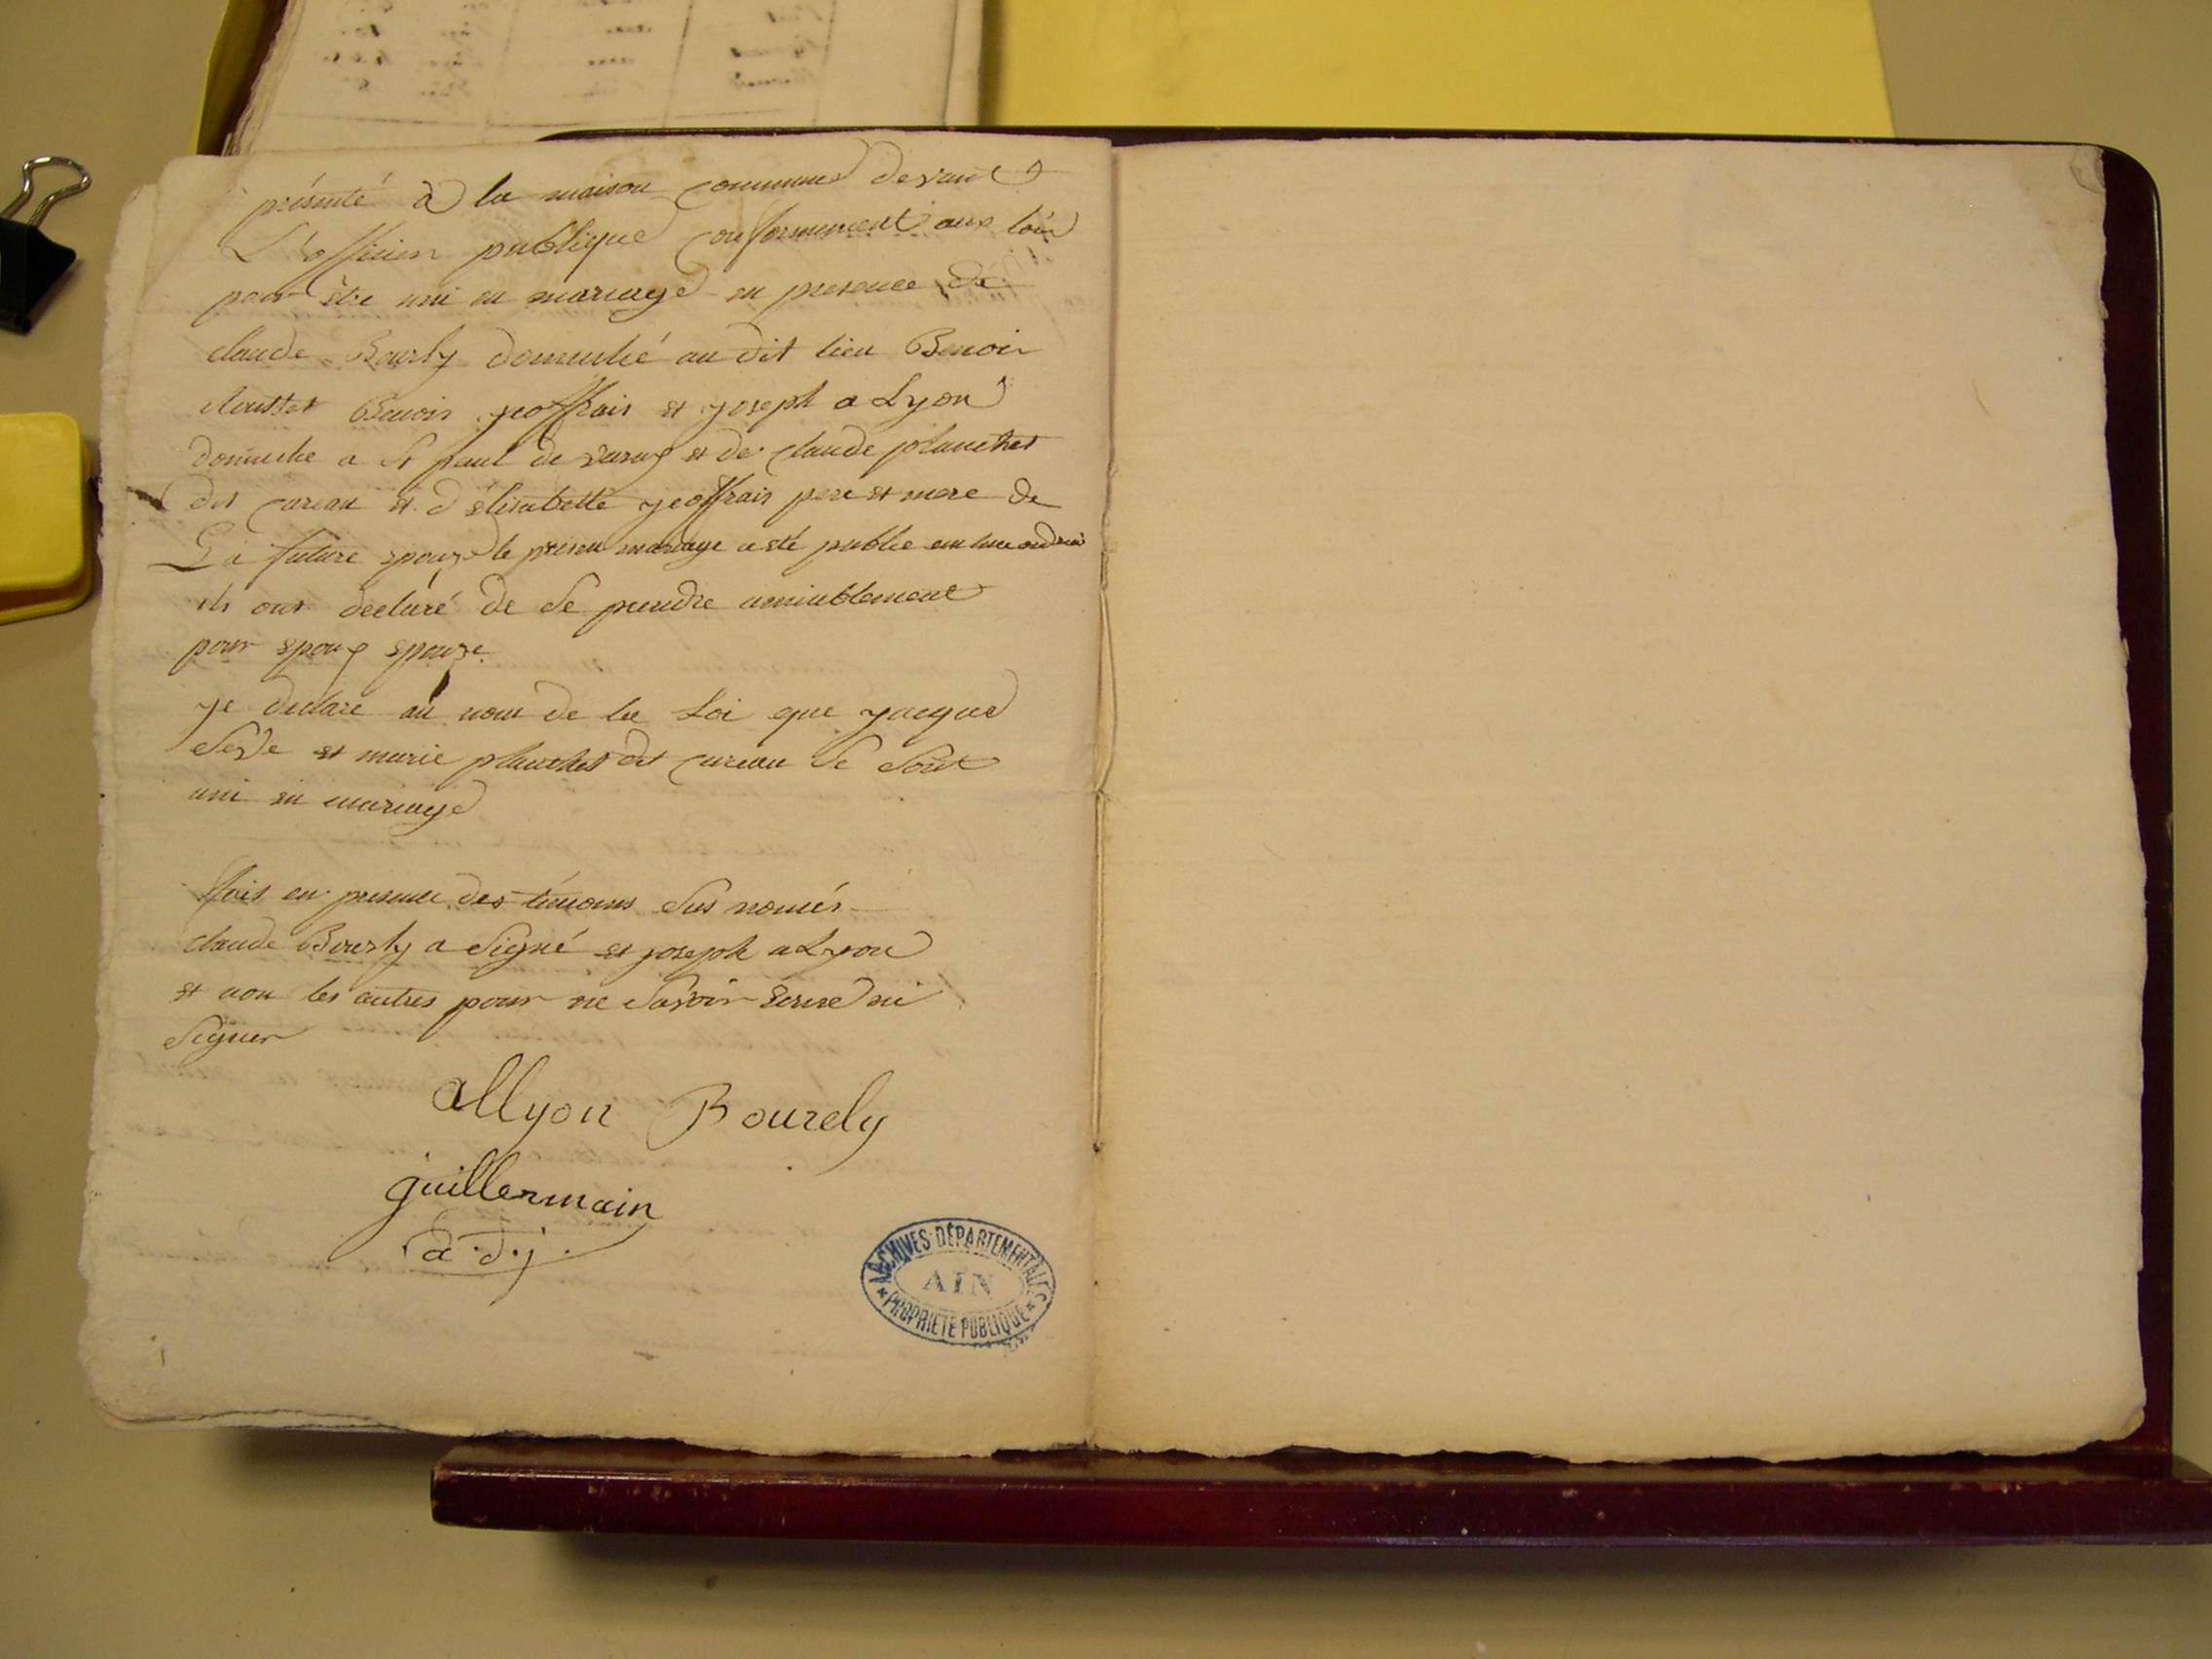 présenté à la maison commune devant
L'officier publique conformement aux lois
pour être uni en mariage en presence de
claude Bourly domicilié au dit lieu Benoir
Benoir yeoffrais et yoseph a Lyon
domicilie a St paul de varax et de claude planchet
dit careau et d'élisabette yeoffrais pere et mere de
La future epouze le present mariage a eté publie
ils ont declaré de se prendre amiablement
pour epoux epouze.
ye declare au nom de la Loi que yacque
Seve et marie planchet dit careau se sont
uni en mariage
fait en presence des témoins sus només
claude Bourly a signé et joseph a Lyon
et non les autres pour ne savoir écrire ni
signer
allyon Bourely
guillermain
a.d.j.
ARCHIVES DÉPARTEMENTALES
AIN
PROPRIETE PUBLIQUE